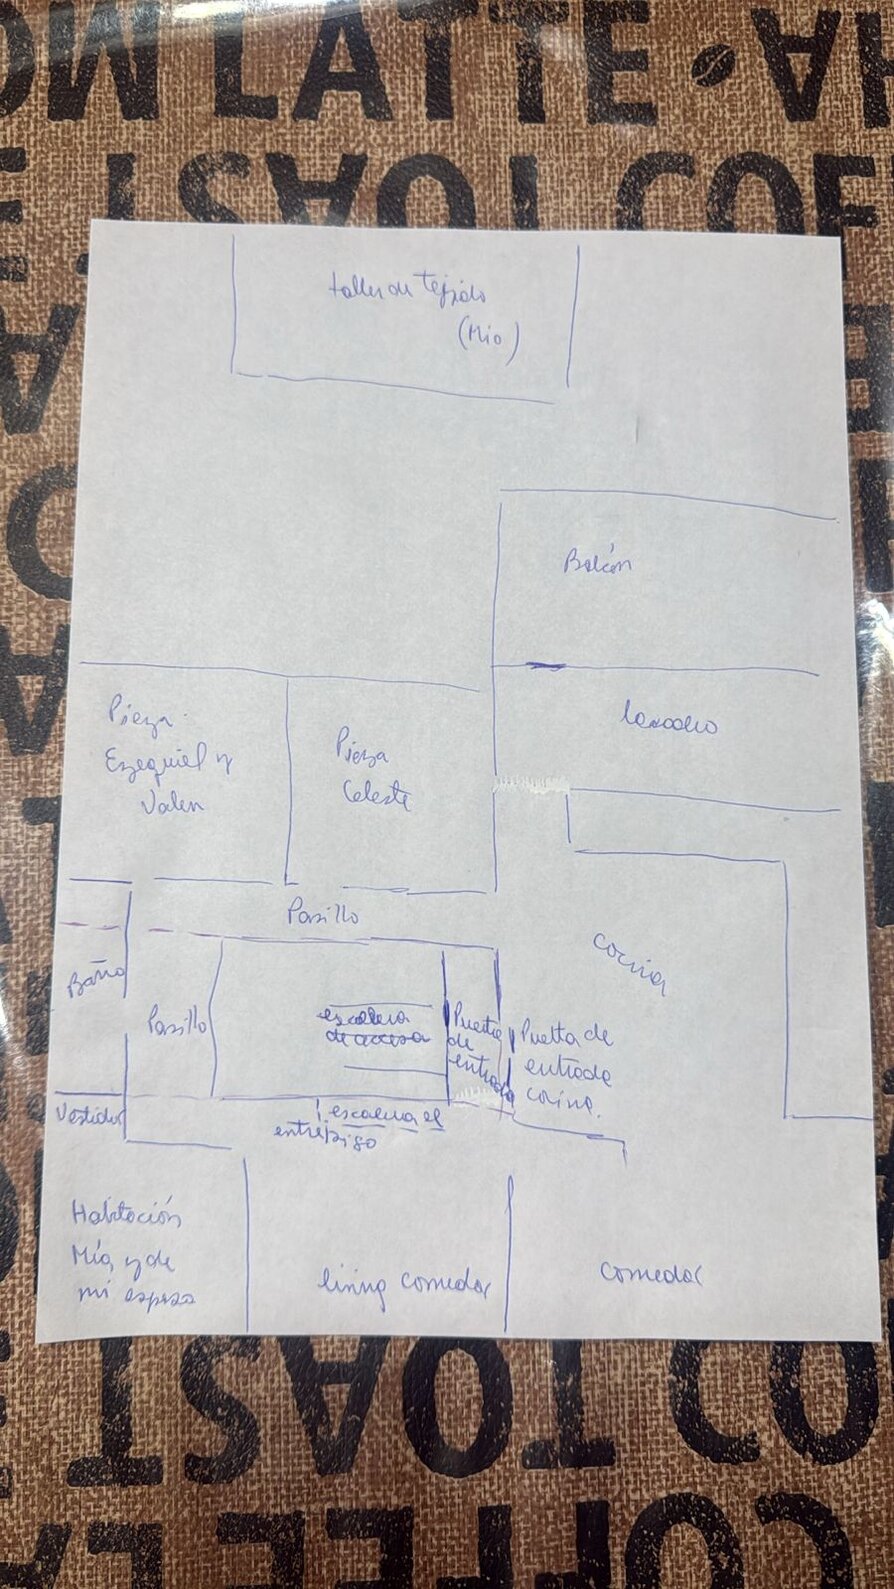 OW LATTE • AH
TOAST COF
taller de Tejido
(Mio)
Balcón
Pieza
Ezequiel y
Valen
Pieza
Celeste
lavadero
Pasillo
Baño
Pasillo
escalera
de acceso
Puerta
de
entrada
Puerta de
entrada
cocina.
cocina
Vestidor
escalera al
entrepiso
Habitación
Mía y de
mi esposo
living comedor
comedor
TOAST CO